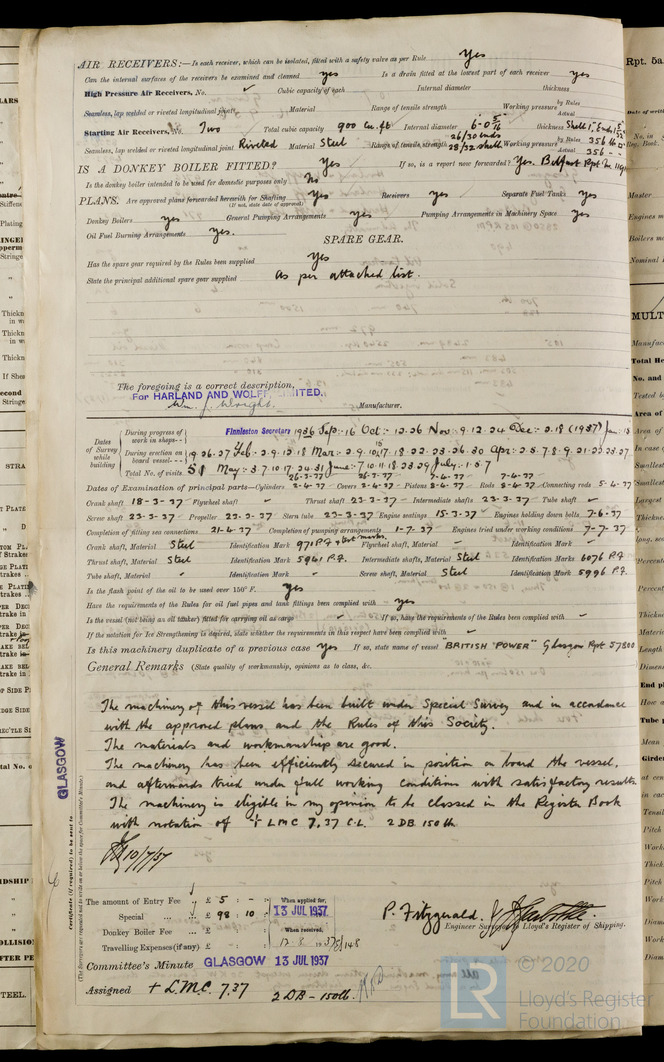 AIR RECEIVERS:—Is each receiver, which can be isolated, fitted with a safety valve as per Rule Yes
Can the internal surfaces of the receivers be examined and cleaned yes Is a drain fitted at the lowest part of each receiver yes
High Pressure Air Receivers, No. Cubic capacity of each Internal diameter thickness
Seamless, lap welded or riveted longitudinal joint Material Range of tensile strength Working pressure by Rules Actual
Starting Air Receivers, No. Two Total cubic capacity 900 cu.ft. Internal diameter 6'-0 5/16 thickness Shell 1", Ends
Seamless, lap welded or riveted longitudinal joint Riveted Material Steel Range of tensile strength 26/30 ends 28/32 shell Working pressure by Rules 356 lb Actual 356
IS A DONKEY BOILER FITTED? Yes If so, is a report now forwarded? Yes. Belfast Rpt No.
Is the donkey boiler intended to be used for domestic purposes only No
PLANS. Are approved plans forwarded herewith for Shafting Yes Receivers yes Separate Fuel Tanks Yes
(If not, state date of approval)
Donkey Boilers yes General Pumping Arrangements yes Pumping Arrangements in Machinery Space yes
Oil Fuel Burning Arrangements yes.
SPARE GEAR.
Has the spare gear required by the Rules been supplied Yes
State the principal additional spare gear supplied As per attached list.
The foregoing is a correct description,
For HARLAND AND WOLFF, LIMITED.
Wm. J. Wright. Manufacturer.
Dates of Survey while building
During progress of work in shops-- Finnieston Secretary 1936 Sep: 16 Oct: 12.26 Nov: 9.12.24 Dec: 2.18 (1937) Jan: 13
During erection on board vessel--- 19.26.27 Feb: 2.9.12.18 Mar: 2.9.10.17.18.22.23.26.30 Apr: 2.5.7.8.9.21.22.23.27
Total No. of visits 51 May: 3.7.10.17.24.31 June: 7.10.11.18.23.29 July: 1.5.7
Dates of Examination of principal parts—Cylinders 26-3-37 2-4-37 Covers 2-4-37 Pistons 2-4-37 Rods 2-4-37 Connecting rods 5-4-37
Crank shaft 18-3-37 Flywheel shaft Thrust shaft 23-3-37 Intermediate shafts 23-3-37 Tube shaft
Screw shaft 23-3-37 Propeller 23-3-37 Stern tube 23-3-37 Engine seatings 15-3-37 Engines holding down bolts 7-6-37
Completion of fitting sea connections 21-4-37 Completion of pumping arrangements 1-7-37 Engines tried under working conditions 7-7-37
Crank shaft, Material Steel Identification Mark 971 P.F. Flywheel shaft, Material Identification Mark
Thrust shaft, Material Steel Identification Mark 5941 P.F. Intermediate shafts, Material Steel Identification Marks 6076 P.F.
Tube shaft, Material Identification Mark Screw shaft, Material Steel Identification Mark 5996 P.F.
Is the flash point of the oil to be used over 150° F. yes
Have the requirements of the Rules for oil fuel pipes and tank fittings been complied with yes
Is the vessel (not being an oil tanker) fitted for carrying oil as cargo If so, have the requirements of the Rules been complied with
If the notation for Ice Strengthening is desired, state whether the requirements in this respect have been complied with
Is this machinery duplicate of a previous case Yes If so, state name of vessel BRITISH "POWER" Glasgow Rpt 57800
General Remarks (State quality of workmanship, opinions as to class, &c.
The machinery of this vessel has been built under Special Survey and in accordance
with the approved plans and the Rules of this Society.
The materials and workmanship are good.
The machinery has been efficiently secured in position on board the vessel,
and afterwards tried under full working conditions with satisfactory results.
The machinery is eligible in my opinion to be classed in the Register Book
with notation of + LMC 7,37 C.L. 2 DB 150 lb
10/7/37
GLASGOW
Certificate (if required) to be sent to
(The Surveyors are requested not to write on or below the space for Committee's Minute.)
The amount of Entry Fee £ 5 : - : When applied for,
Special £ 98 : 10 : 13 JUL 1937
Donkey Boiler Fee £ : : When received,
Travelling Expenses (if any) £ : :
P. Fitzgerald.
Engineer Surveyor to Lloyd's Register of Shipping.
Committee's Minute GLASGOW 13 JUL 1937
Assigned + L.M.C. 7.37
2 DB - 150 lb.
© 2020
LR
Lloyd's Register
Foundation
Rpt. 5a